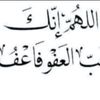 اللهُمَّ إِنَّكَ
ـبُّ العَفْوَ فَاعْفُ